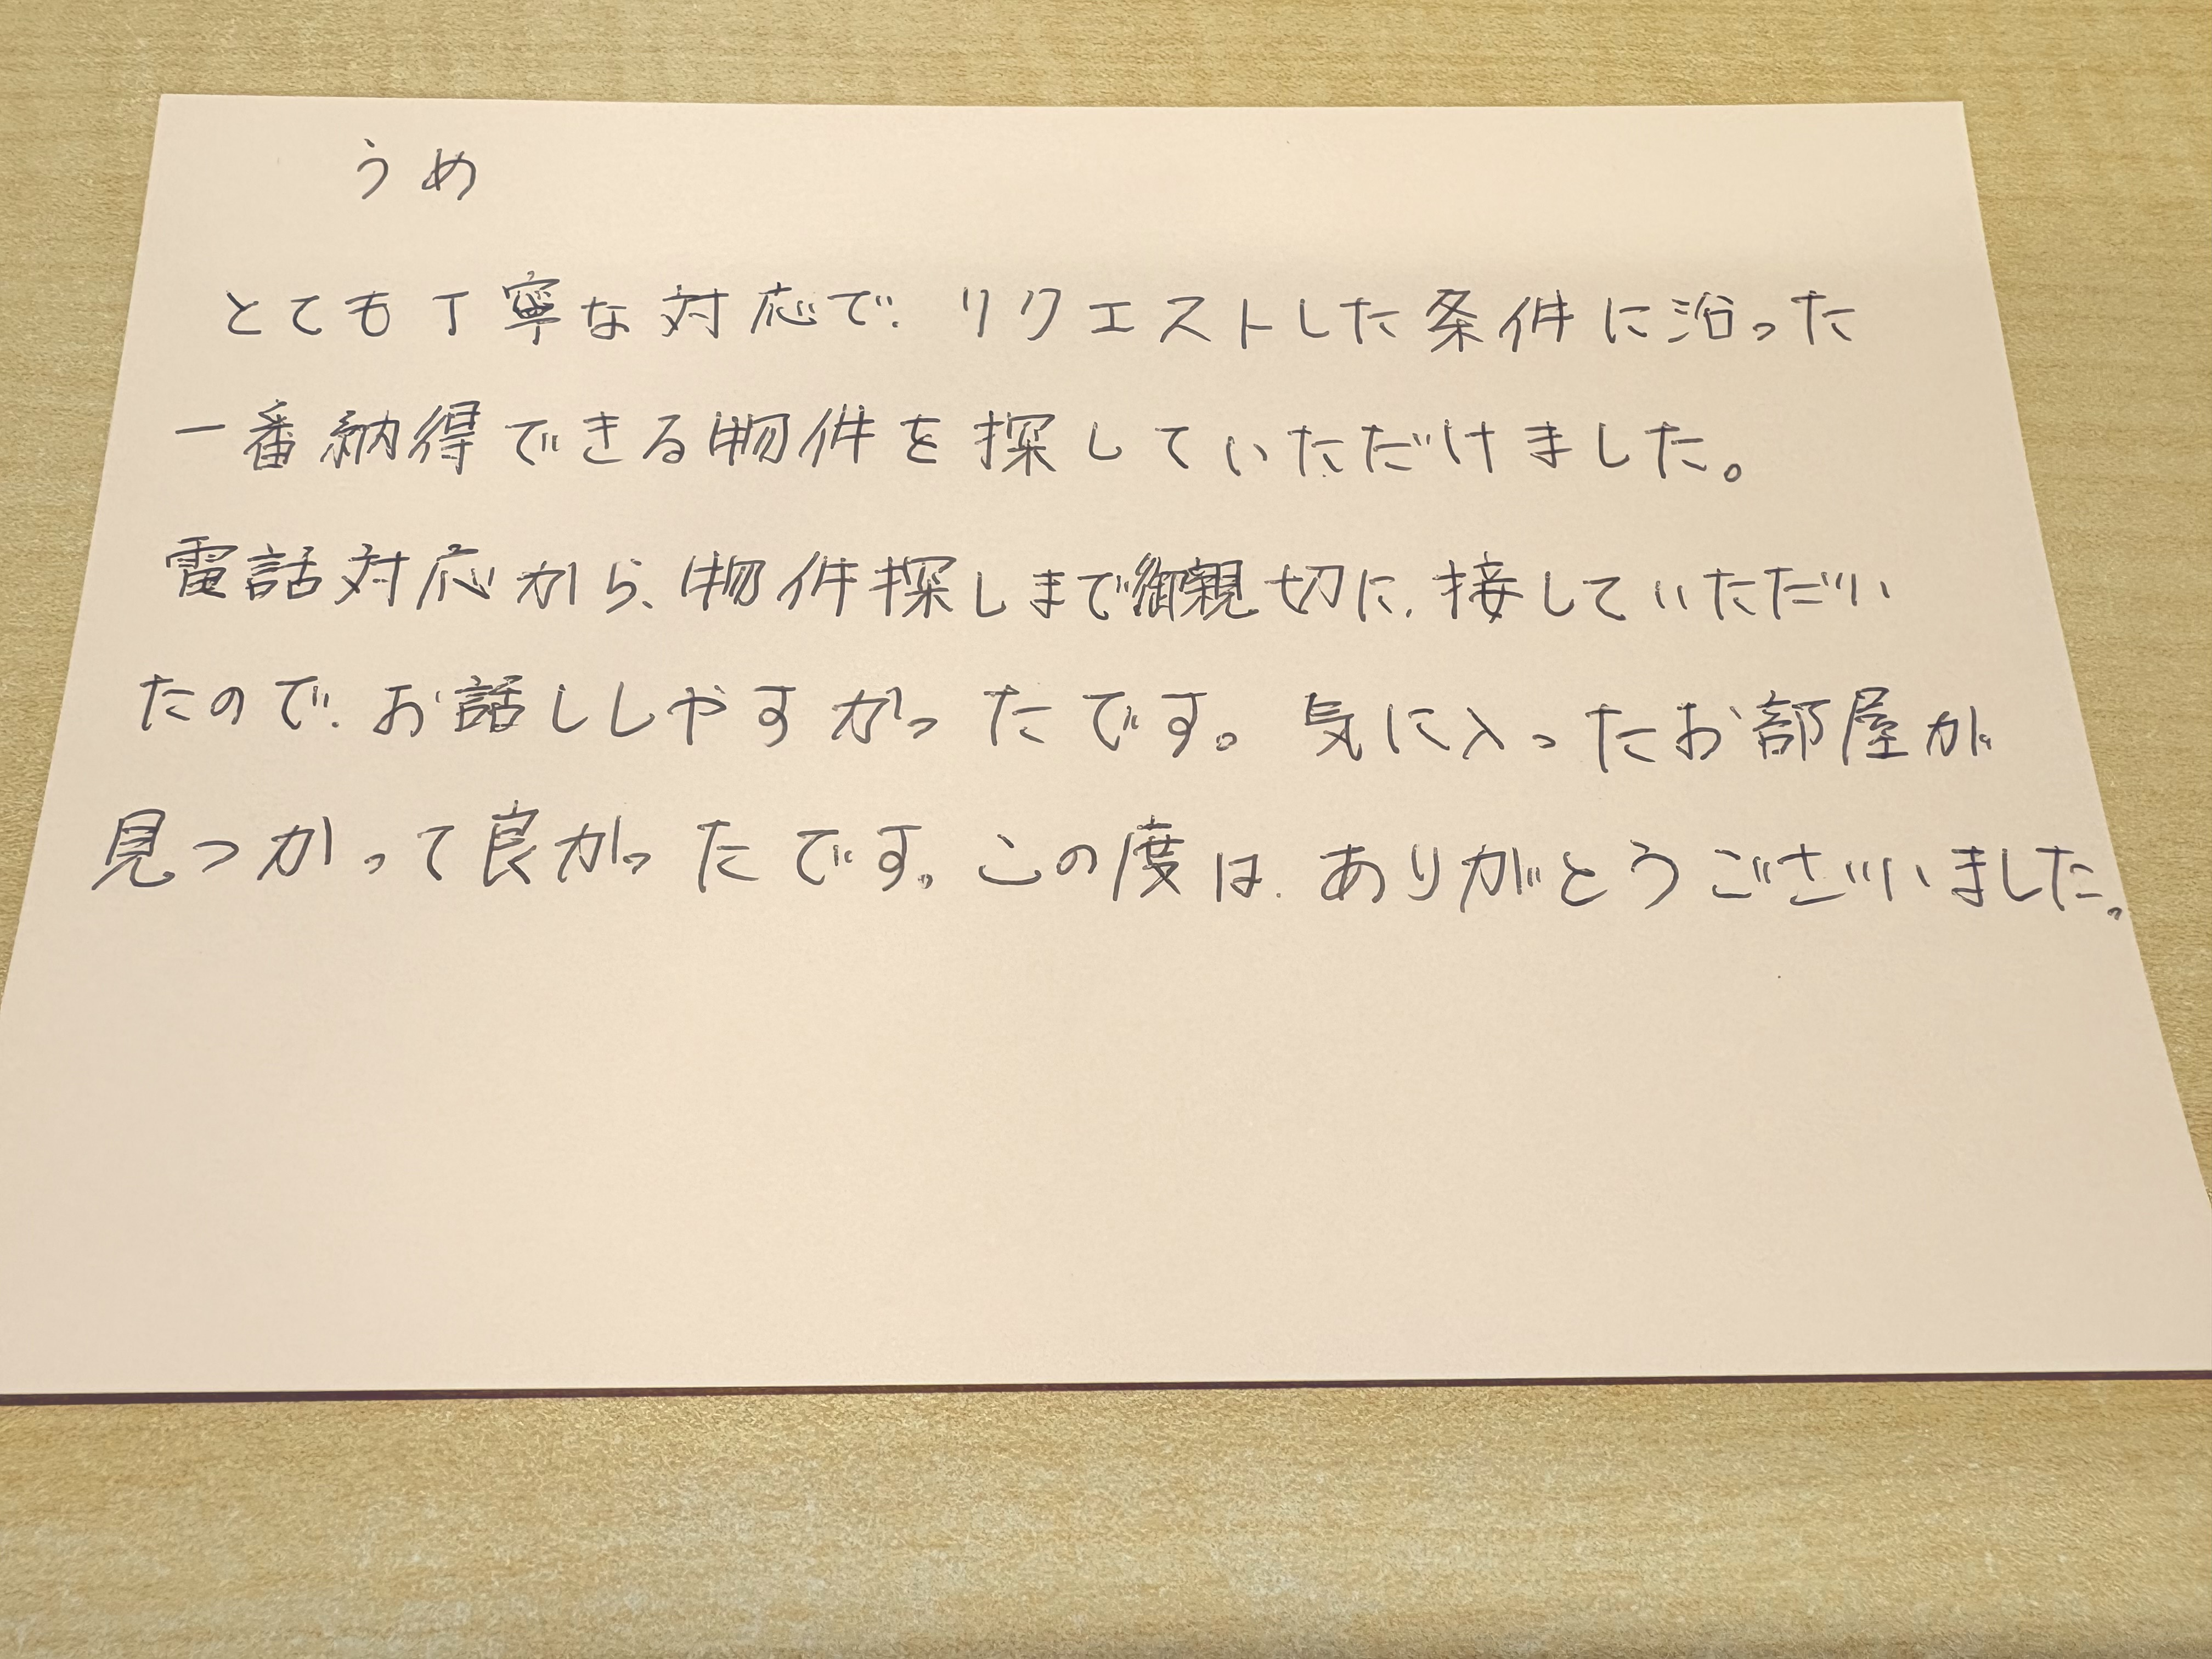 うめ
とても丁寧な対応で、リクエストした条件に沿った
一番納得できる物件を探していただけました。
電話対応から、物件探しまで御親切に、接していただい
たので、お話ししやすかったです。気に入ったお部屋が
見つかって良かったです。この度は、ありがとうございました。